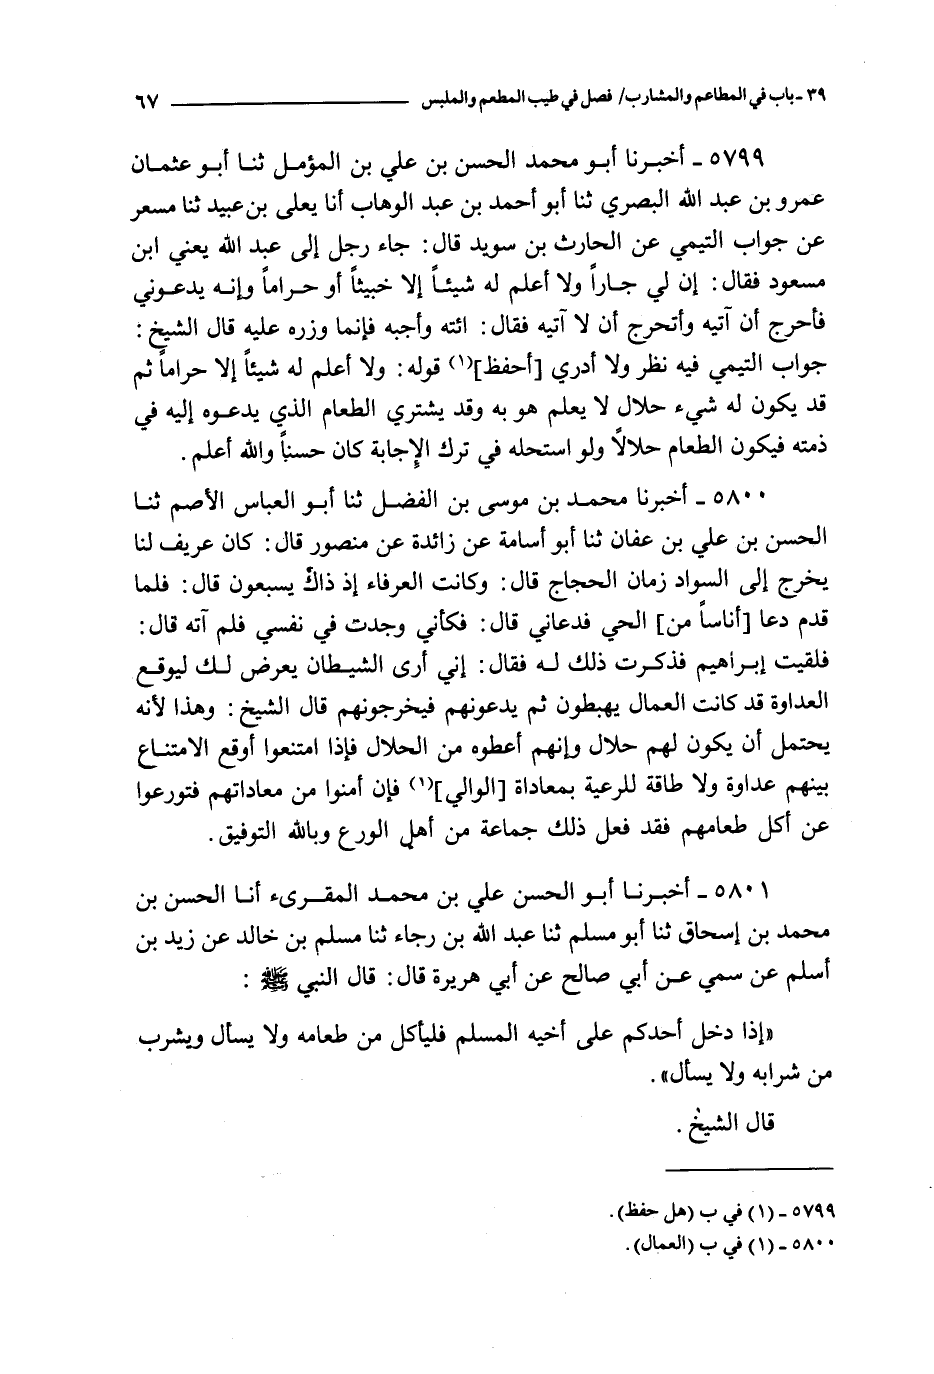 ٣٩ - باب في المطاعم والمشارب/ فصل في طيب المطعم والملبس ٦٧
٥٧٩٩ - أخبرنا أبو محمد الحسن بن علي بن المؤمل ثنا أبو عثمان
عمرو بن عبد الله البصري ثنا أبو أحمد بن عبد الوهاب أنا يعلى بن عبيد ثنا مسعر
عن جواب التيمي عن الحارث بن سويد قال: جاء رجل إلى عبد الله يعني ابن
مسعود فقال: إن لي جاراً ولا أعلم له شيئاً إلا خبيثاً أو حراماً وإنه يدعوني
فأحرج أن آتيه وأتحرج أن لا آتيه فقال: ائته وأجبه فإنما وزره عليه قال الشيخ:
جواب التيمي فيه نظر ولا أدري [أحفظ](١) قوله: ولا أعلم له شيئاً إلا حراماً ثم
قد يكون له شيء حلال لا يعلم هو به وقد يشتري الطعام الذي يدعوه إليه في
ذمته فيكون الطعام حلالاً ولو استحله في ترك الإجابة كان حسناً والله أعلم.
٥٨٠٠ - أخبرنا محمد بن موسى بن الفضل ثنا أبو العباس الأصم ثنا
الحسن بن علي بن عفان ثنا أبو أسامة عن زائدة عن منصور قال: كان عريف لنا
يخرج إلى السواد زمان الحجاج قال: وكانت العرفاء إذ ذاك يسبعون قال: فلما
قدم دعا [أناساً من] الحي فدعاني قال: فكأني وجدت في نفسي فلم آته قال:
فلقيت إبراهيم فذكرت ذلك له فقال: إني أرى الشيطان يعرض لك ليوقع
العداوة قد كانت العمال يهبطون ثم يدعونهم فيخرجونهم قال الشيخ: وهذا لأنه
يحتمل أن يكون لهم حلال وإنهم أعطوه من الحلال فإذا امتنعوا أوقع الامتناع
بينهم عداوة ولا طاقة للرعية بمعاداة [الوالي](١) فإن أمنوا من معاداتهم فتورعوا
عن أكل طعامهم فقد فعل ذلك جماعة من أهل الورع وبالله التوفيق.
٥٨٠١ - أخبرنا أبو الحسن علي بن محمد المقرىء أنا الحسن بن
محمد بن إسحاق ثنا أبو مسلم ثنا عبد الله بن رجاء ثنا مسلم بن خالد عن زيد بن
أسلم عن سمي عن أبي صالح عن أبي هريرة قال: قال النبي ﷺ:
«إذا دخل أحدكم على أخيه المسلم فليأكل من طعامه ولا يسأل ويشرب
من شرابه ولا يسأل».
قال الشيخ.
٥٧٩٩ - (١) في ب (هل حفظ).
٥٨٠٠ - (١) في ب (العمال).